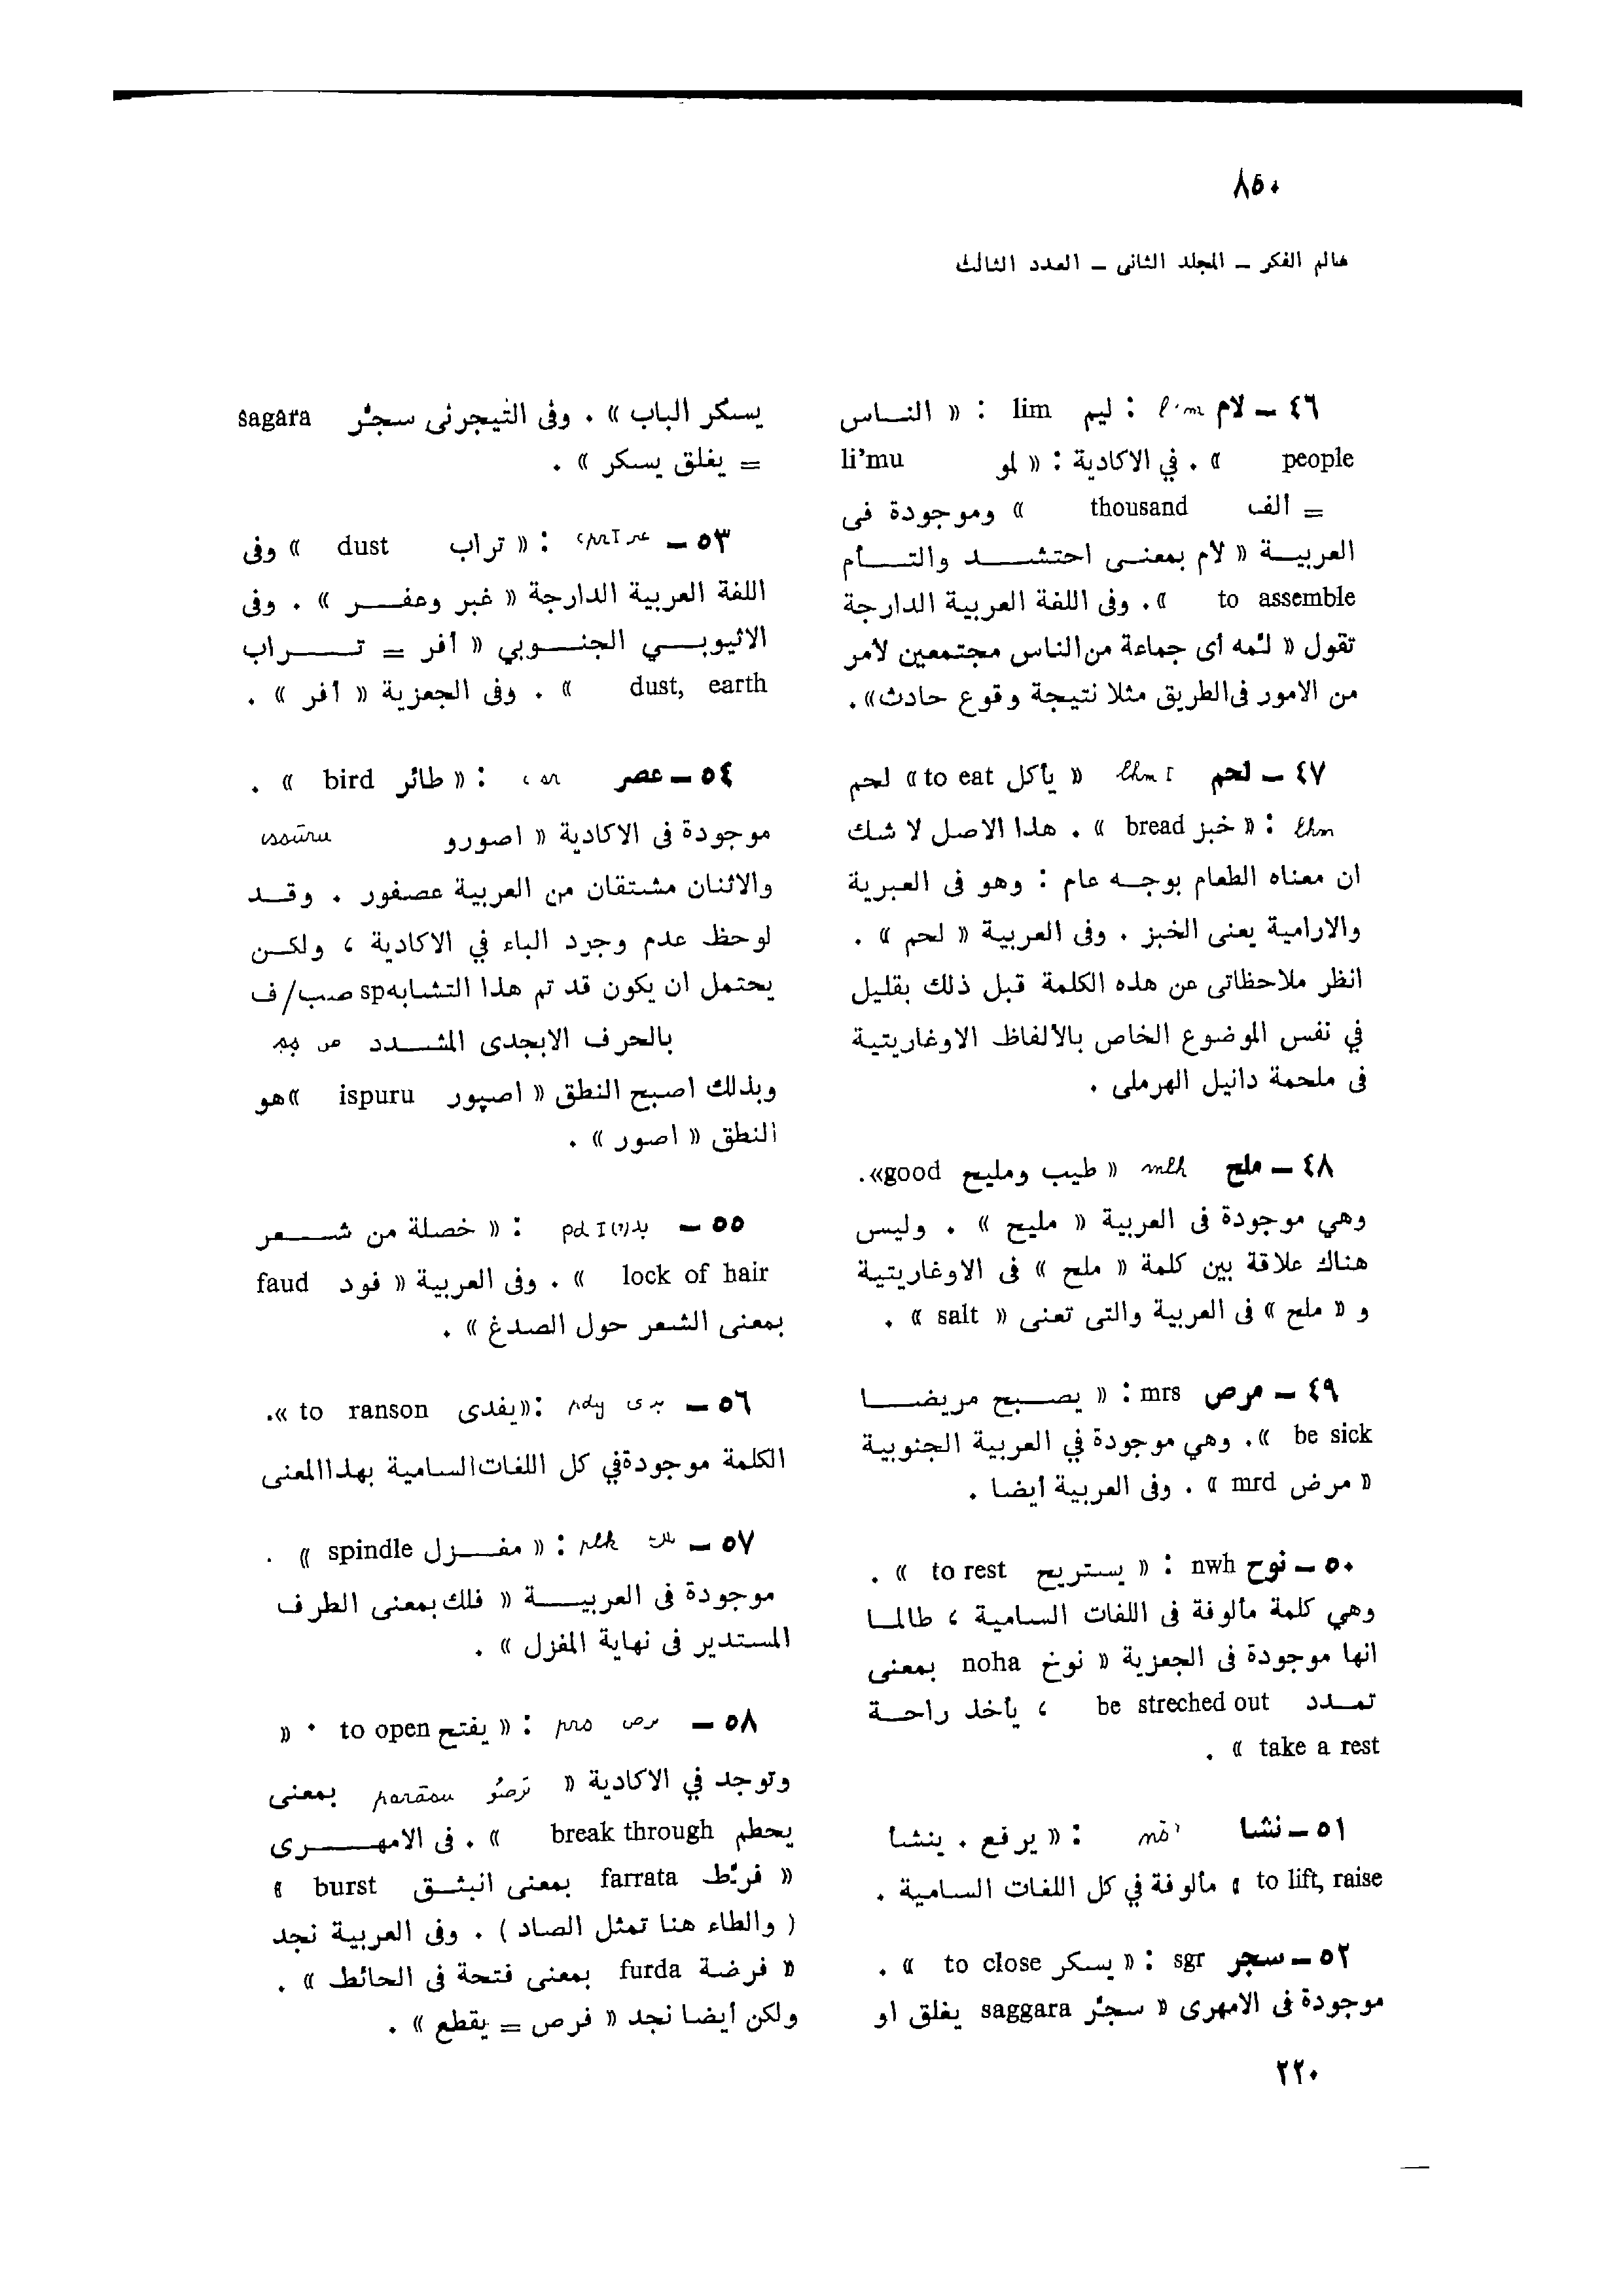 ٨٥٠
عالم الفكر – المجلد الثانى – العدد الثالث
٤٦ – لام l'm : ليم lim : « الناس
people » . في الاكادية : « لمو li'mu
= الف thousand » وموجودة فى
العربية « لام بمعنى احتشد والتام
to assemble » . وفى اللغة العربية الدارجة
تقول « لمه أى جماعة من الناس مجتمعين لامر
من الامور فى الطريق مثلا نتيجة وقوع حادث» .
٤٧ – لحم lhm I « يأكل to eat » لحم
lhm : « خبز bread » . هذا الاصل لا شك
ان معناه الطعام بوجه عام : وهو فى العبرية
والارامية يعنى الخبز . وفى العربية « لحم » .
انظر ملاحظاتى عن هذه الكلمة قبل ذلك بقليل
في نفس الموضوع الخاص بالالفاظ الاوغاريتية
فى ملحمة دانيل الهرملى .
٤٨ – ملح mlh « طيب ومليح good» .
وهي موجودة فى العربية « مليح » . وليس
هناك علاقة بين كلمة « ملح » فى الاوغاريتية
و « ملح » فى العربية والتى تعنى « salt » .
٤٩ – مرص mrs : « يصبح مريضا
be sick » . وهي موجودة في العربية الجنوبية
« مرض mrd » . وفى العربية أيضا .
٥٠ – نوح nwh : « يستريح to rest » .
وهي كلمة مألوفة فى اللغات السامية ، طالما
انها موجودة فى الجعزية « نوخ noha بمعنى
تمدد be streched out ، يأخذ راحة
take a rest » .
٥١ – نشا : « يرفع . ينشا
to lift, raise » مألوفة في كل اللغات السامية .
٥٢ – سجر sgr : « يسكر to close » .
موجودة فى الامهرى « سجّر saggara يغلق او
يسكر الباب » . وفى التيجرنى سجّر sagara
= يغلق يسكر » .
٥٣ – : « تراب dust » وفى
اللغة العربية الدارجة « غبر وعفر » . وفى
الاثيوبي الجنوبي « أفر = تراب
dust, earth » . وفى الجعزية « أفر » .
٥٤ – عصر : « طائر bird » .
موجودة فى الاكادية « اصورو issūru
والاثنان مشتقان من العربية عصفور . وقد
لوحظ عدم وجرد الباء في الاكادية ، ولكن
يحتمل ان يكون قد تم هذا التشابه sp صب/ف
بالحرف الابجدى المشدد ص
وبذلك اصبح النطق « اصپور ispuru » هو
النطق « اصور » .
٥٥ – پد(؟) pd I : « خصلة من شعر
lock of hair » . وفى العربية « فود faud
بمعنى الشعر حول الصدغ » .
٥٦ – pdy : «يفدى to ranson » .
الكلمة موجودة في كل اللغات السامية بهذا المعنى
٥٧ – plk : « مغزل spindle » .
موجودة فى العربية « فلك بمعنى الطرف
المستدير فى نهاية المغزل » .
٥٨ – prs : « يفتح to open . »
وتوجد في الاكادية « بمعنى
يحطم break through » . فى الامهرى
« فرّط farrata بمعنى انبثق burst »
( والطاء هنا تمثل الصاد ) . وفى العربية نجد
« فرضة furda بمعنى فتحة فى الحائط » .
ولكن أيضا نجد « فرص = يقطع » .
٢٢٠